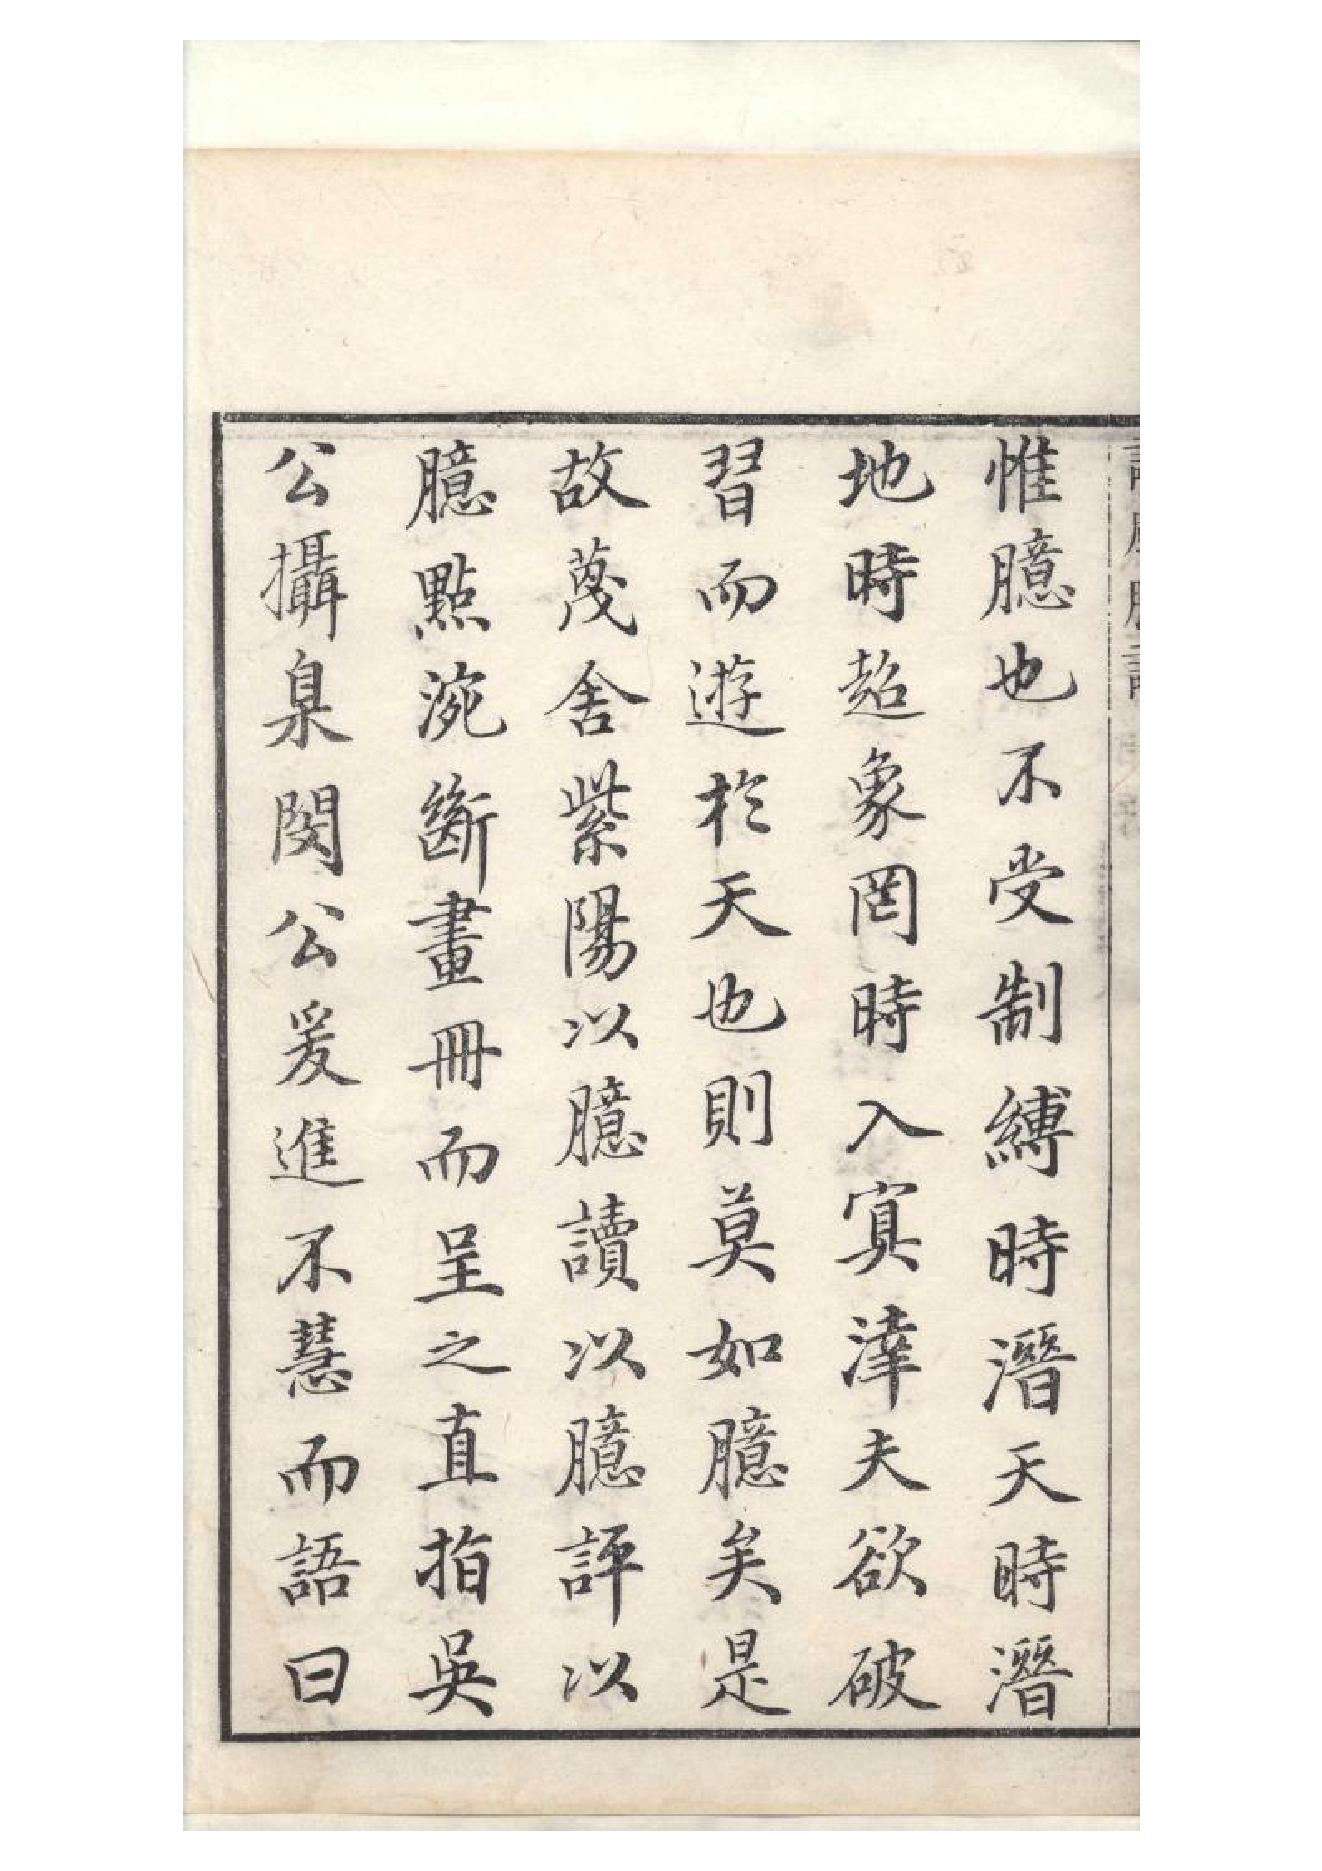 惟臆也不受制縛時潛天時潛
地時超象罔時入寞涬夫欲破
習而遊於天也則莫如臆矣是
故蔑舍紫陽以臆讀以臆評以
臆點涴斷畫冊而呈之直指吳
公攝臬閔公爰進不慧而語曰